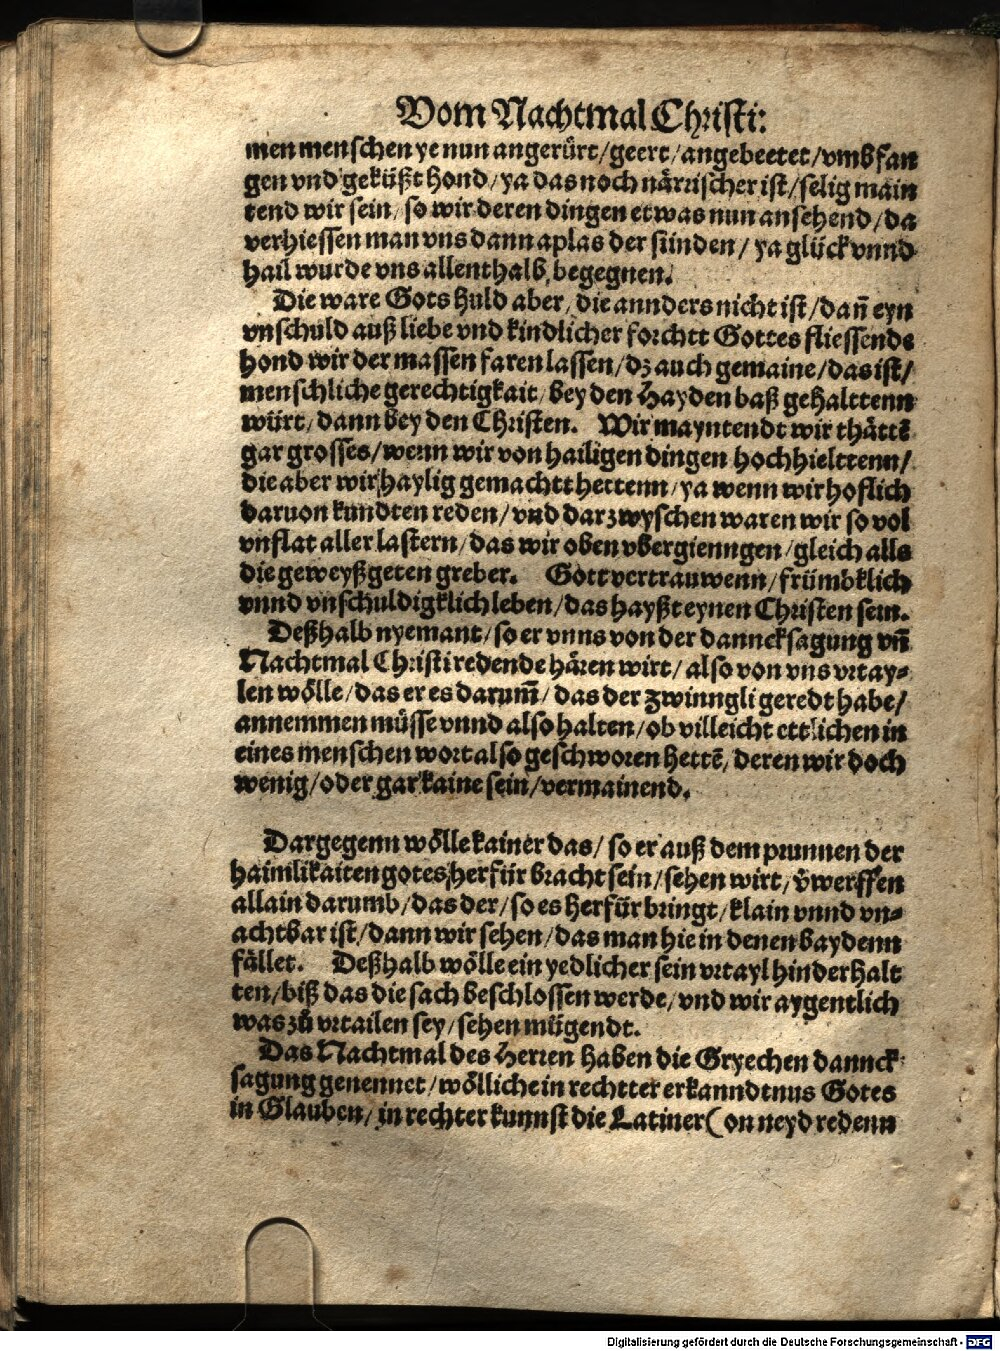 Vom Nachtmal Christi:
men menschen ye nun angerürt/geert/angebeetet/vmbfan
gen vnd geküßt hond/ya das noch närrischer ist/selig main
tend wir sein/so wir deren dingen etwas nun ansehend/da
verhiessen man vns dann aplas der sünden/ya glück vnnd
hail wurde vns allenthalb begegnen.
Die ware Gots huld aber/die annders nicht ist/dañ eyn
vnschuld auß liebe vnd kindlicher forchtt Gottes fliessende
hond wir der massen faren lassen/dz auch gemaine/das ist/
menschliche gerechtigkait/bey den Hayden baß gehalttenn
würt/dann bey den Christen. Wir mayntendt wir thättē
gar grosses/wenn wir von hailigen dingen hochhielttenn/
die aber wir haylig gemachtt hettenn/ya wenn wir hoflich
daruon kundten reden/vnd darzwyschen waren wir so vol
vnflat aller lastern/das wir oben vbergienngen/gleich alls
die geweyßgeten greber. Gott vertrauwenn/frümbklich
vnnd vnschuldigklich leben/das hayßt eynen Christen sein.
Deßhalb nyemant/so er vnns von der dancksagung vñ
Nachtmal Christi redende hären wirt/also von vns vrtay-
len wölle/das er es darum̃/das der zwinngli geredt habe/
annemmen müsse vnnd also halten/ob villeicht ettlichen in
eines menschen wort also geschworen hettē/deren wir doch
wenig/oder gar kaine sein/vermainend.
Dargegenn wölle kainer das/so er auß dem prunnen der
haimlikaiten gotes herfür bracht sein/sehen wirt/v̈werffen
allain darumb/das der/so es herfür bringt/klain vnnd vn-
achtbar ist/dann wir sehen/das man hie in denen baydenn
fället. Deßhalb wölle ein yedlicher sein vrtayl hinderhalt
ten/biß das die sach beschlossen werde/vnd wir aygentlich
was zů vrtailen sey/sehen mügendt.
Das Nachtmal des Herren haben die Gryechen dannck-
sagung genennet/wölliche in rechtter erkanndtnus Gotes
in Glauben/in rechter kunnst die Latiner (on neyd redenn
Digitalisierung gefördert durch die Deutsche Forschungsgemeinschaft - DFG